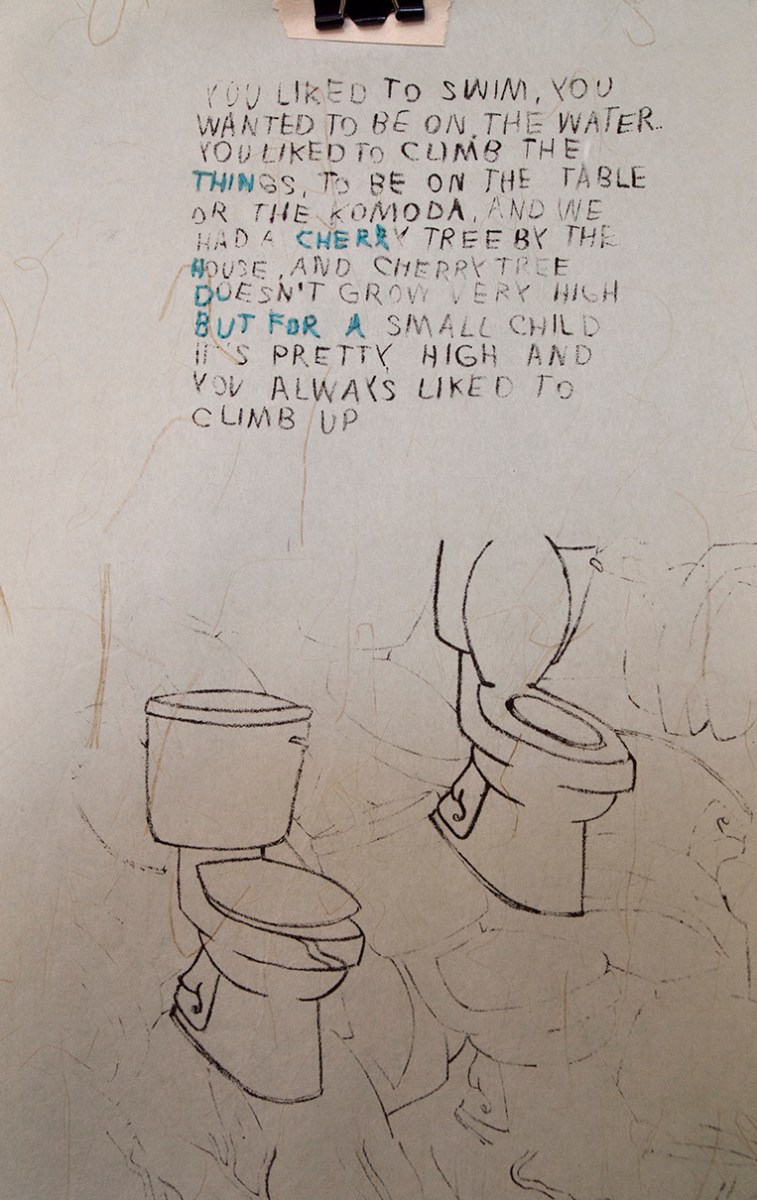 YOU LIKED TO SWIM, YOU
WANTED TO BE ON THE WATER..
YOU LIKED TO CLIMB THE
THINGS, TO BE ON THE TABLE
OR THE KOMODA, AND WE
HAD A CHERRY TREE BY THE
HOUSE, AND CHERRY TREE
DOESN'T GROW VERY HIGH
BUT FOR A SMALL CHILD
IT'S PRETTY HIGH AND
YOU ALWAYS LIKED TO
CLIMB UP